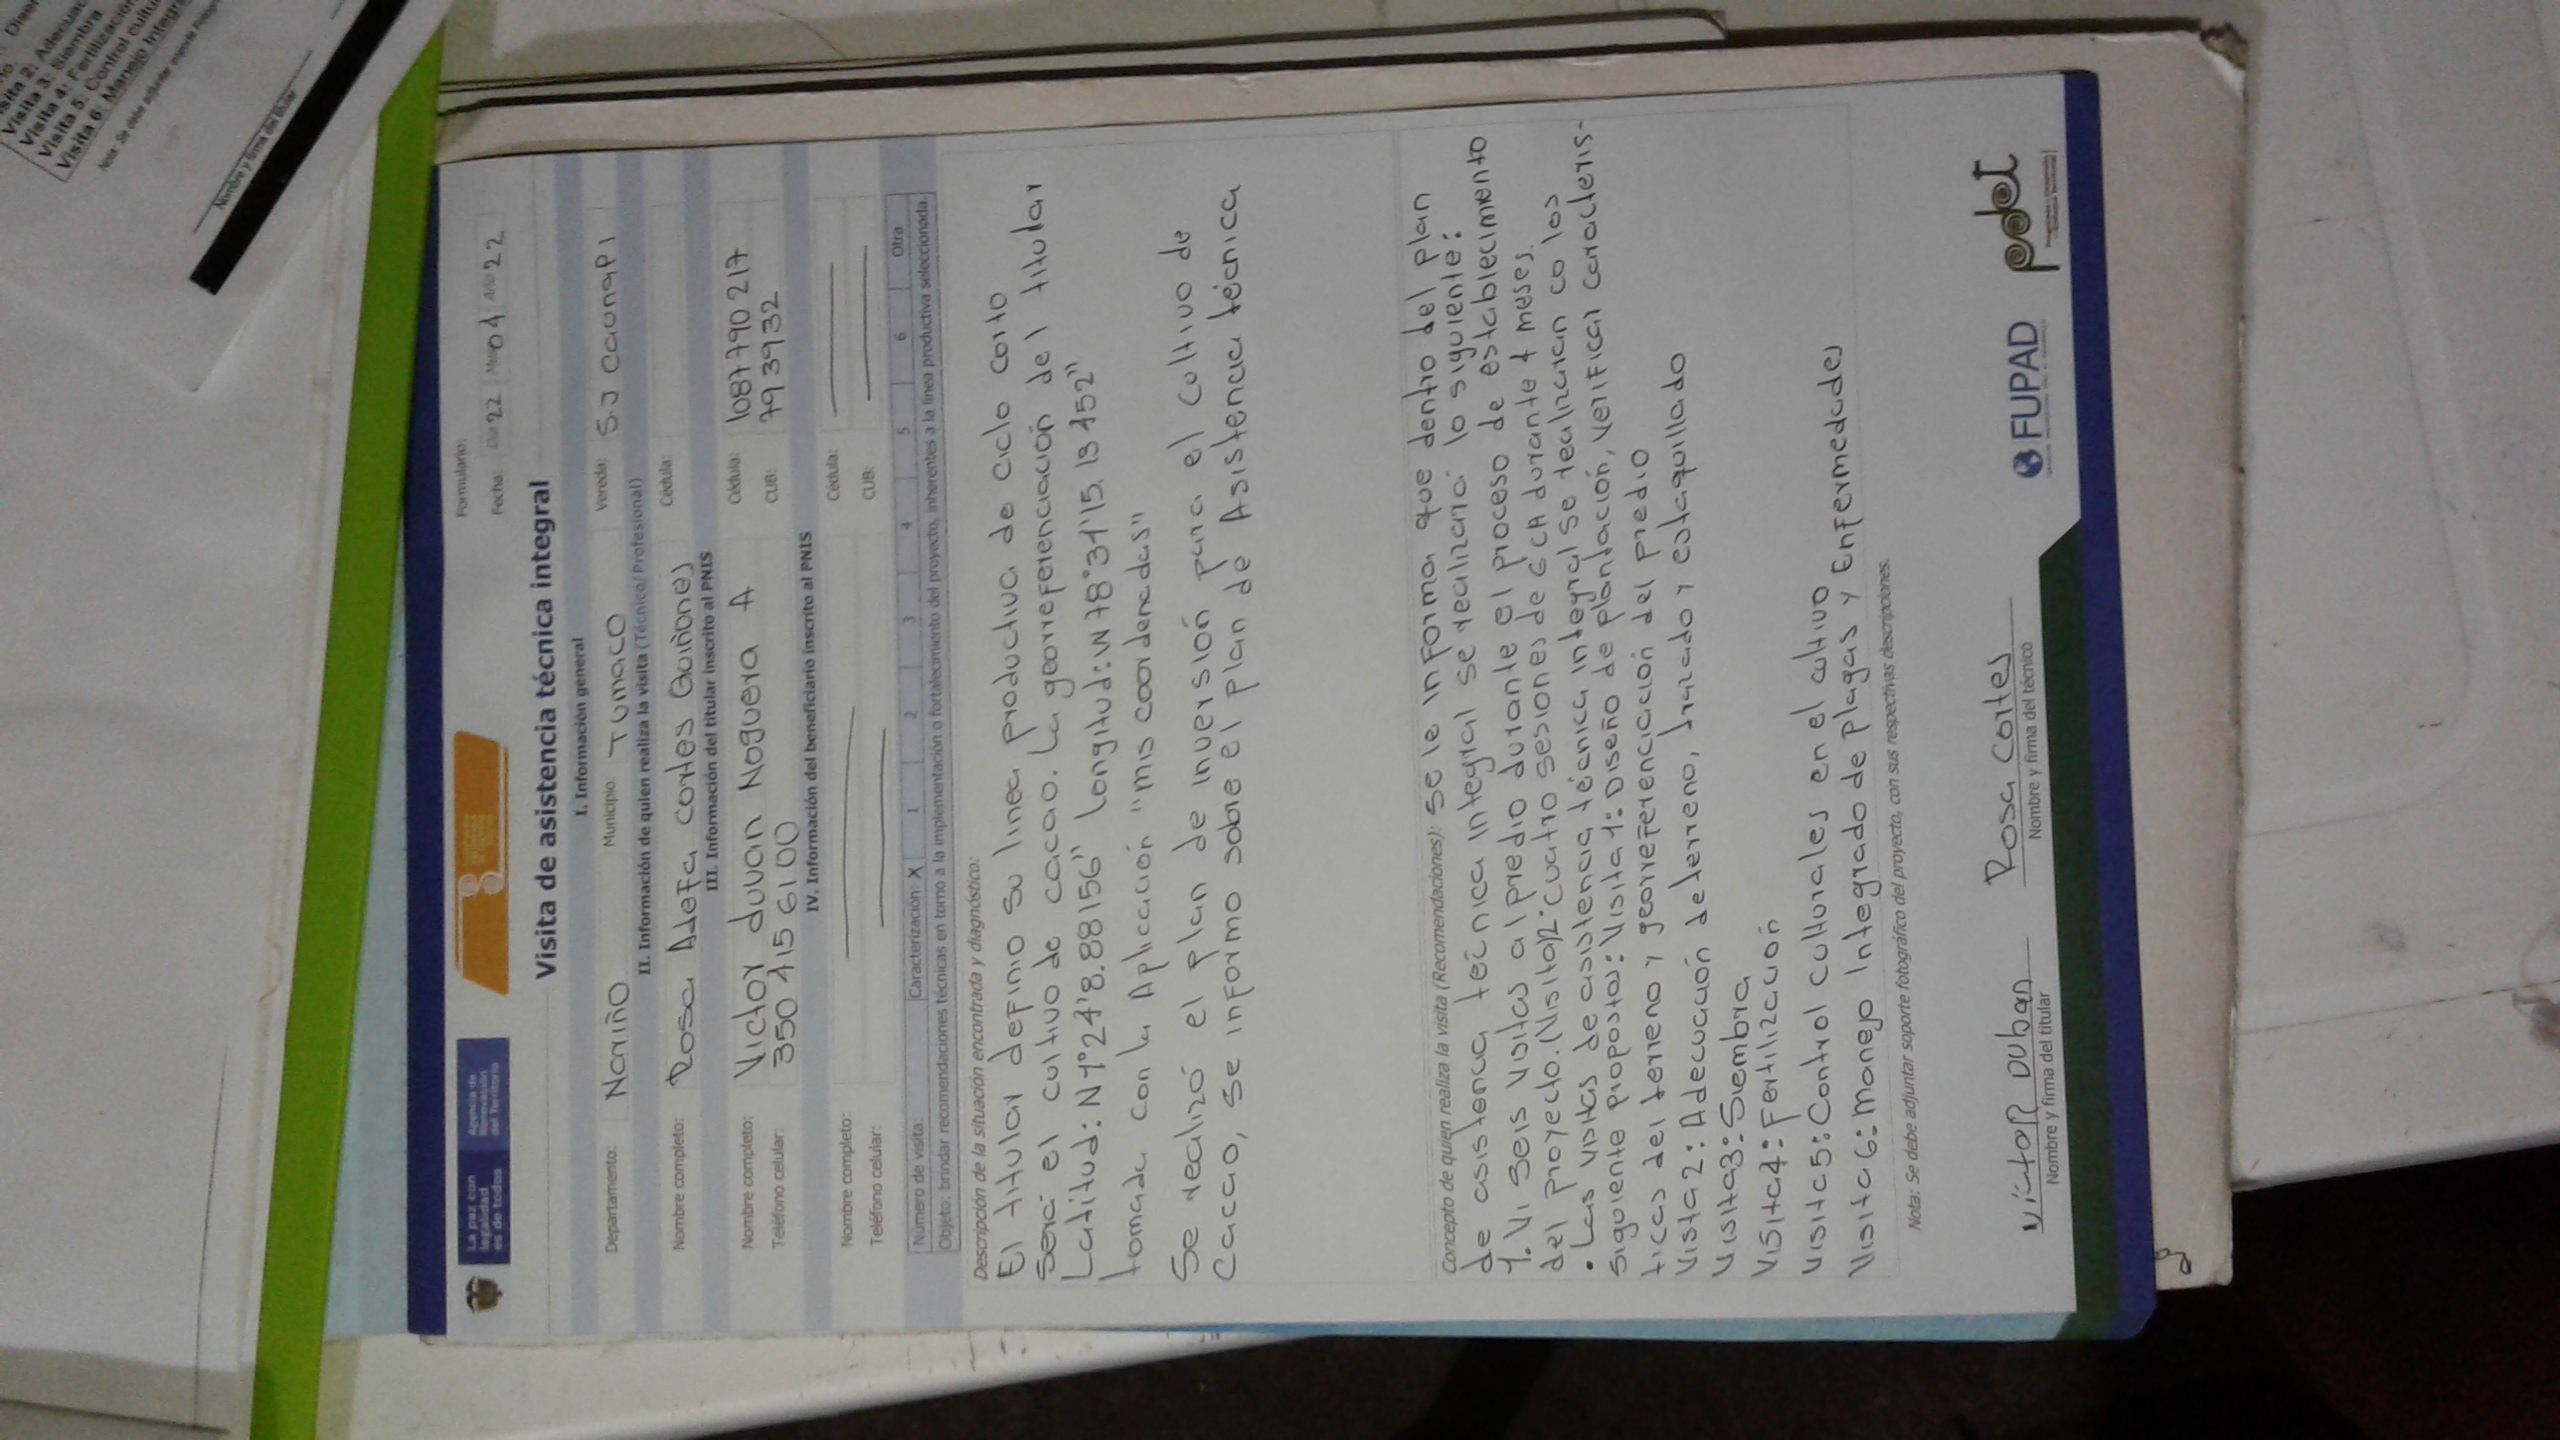 La paz con
legalidad
es de todos
Agencia de
Renovación
del Territorio
Formulario:
Fecha: Día 22 Mes 04 Año 22
Visita de asistencia técnica integral
I. Información general
Departamento: Nariño Municipio: Tumaco Vereda: S.J Caunapi
II. Información de quien realiza la visita (Técnico/Profesional)
Nombre completo: Rosa Adefa cortes Quiñones Cédula:
III. Información del titular inscrito al PNIS
Nombre completo: Victor duvan Noguera A Cédula: 1087790217
Teléfono celular: 350 415 6100 CUB: 793932
IV. Información del beneficiario inscrito al PNIS
Nombre completo: Cédula:
Teléfono celular: CUB:
Número de visita: Caracterización: X 1 2 3 4 5 6 Otra
Objeto: brindar recomendaciones técnicas en torno a la implementación o fortalecimiento del proyecto, inherentes a la línea productiva seleccionada.
Descripción de la situación encontrada y diagnóstico:
El titular definio su linea productiva de ciclo corto
Será el cultivo de cacao. La georreferenciación del titular
Latitud: N1°24'8.88156" Longitud: W78°31'15.13452"
tomada con la Aplicación "mis coordenadas"
Se realizó el plan de inversión para el Cultivo de
Cacao, se informo sobre el plan de Asistencia técnica
Concepto de quien realiza la visita (Recomendaciones): Se le informa que dentro del plan
de asistencia técnica integral se realizará lo siguiente:
1. Vi Seis visitas al predio durante el proceso de establecimento
del proyecto. (Visita)2: Cuatro sesiones de ECA durante 4 meses.
• Las visitas de asistencia técnica integral se realizarian co los
siguiente propositos: Visita 1: Diseño de plantación, verificar caracteris-
ticas del terreno y georreferenciación del predio
Vista 2: Adecuación de terreno, trazado y estaquillado
Visita3: Siembra
Visita4: Fertilización
Visita5: Control culturales en el cultivo
Visita 6: Manejo Integrado de plagas y Enfermedades
Nota: Se debe adjuntar soporte fotográfico del proyecto, con sus respectivas descripciones.
VictoR Duban
Nombre y firma del titular
Rosa Cortes
Nombre y firma del técnico
FUPAD
pdet
Visita 3: Siembra
Visita 4: Fertilización
Visita 5: Control cultu
Visita 6: Manejo Integra
Nombre y firma del titular